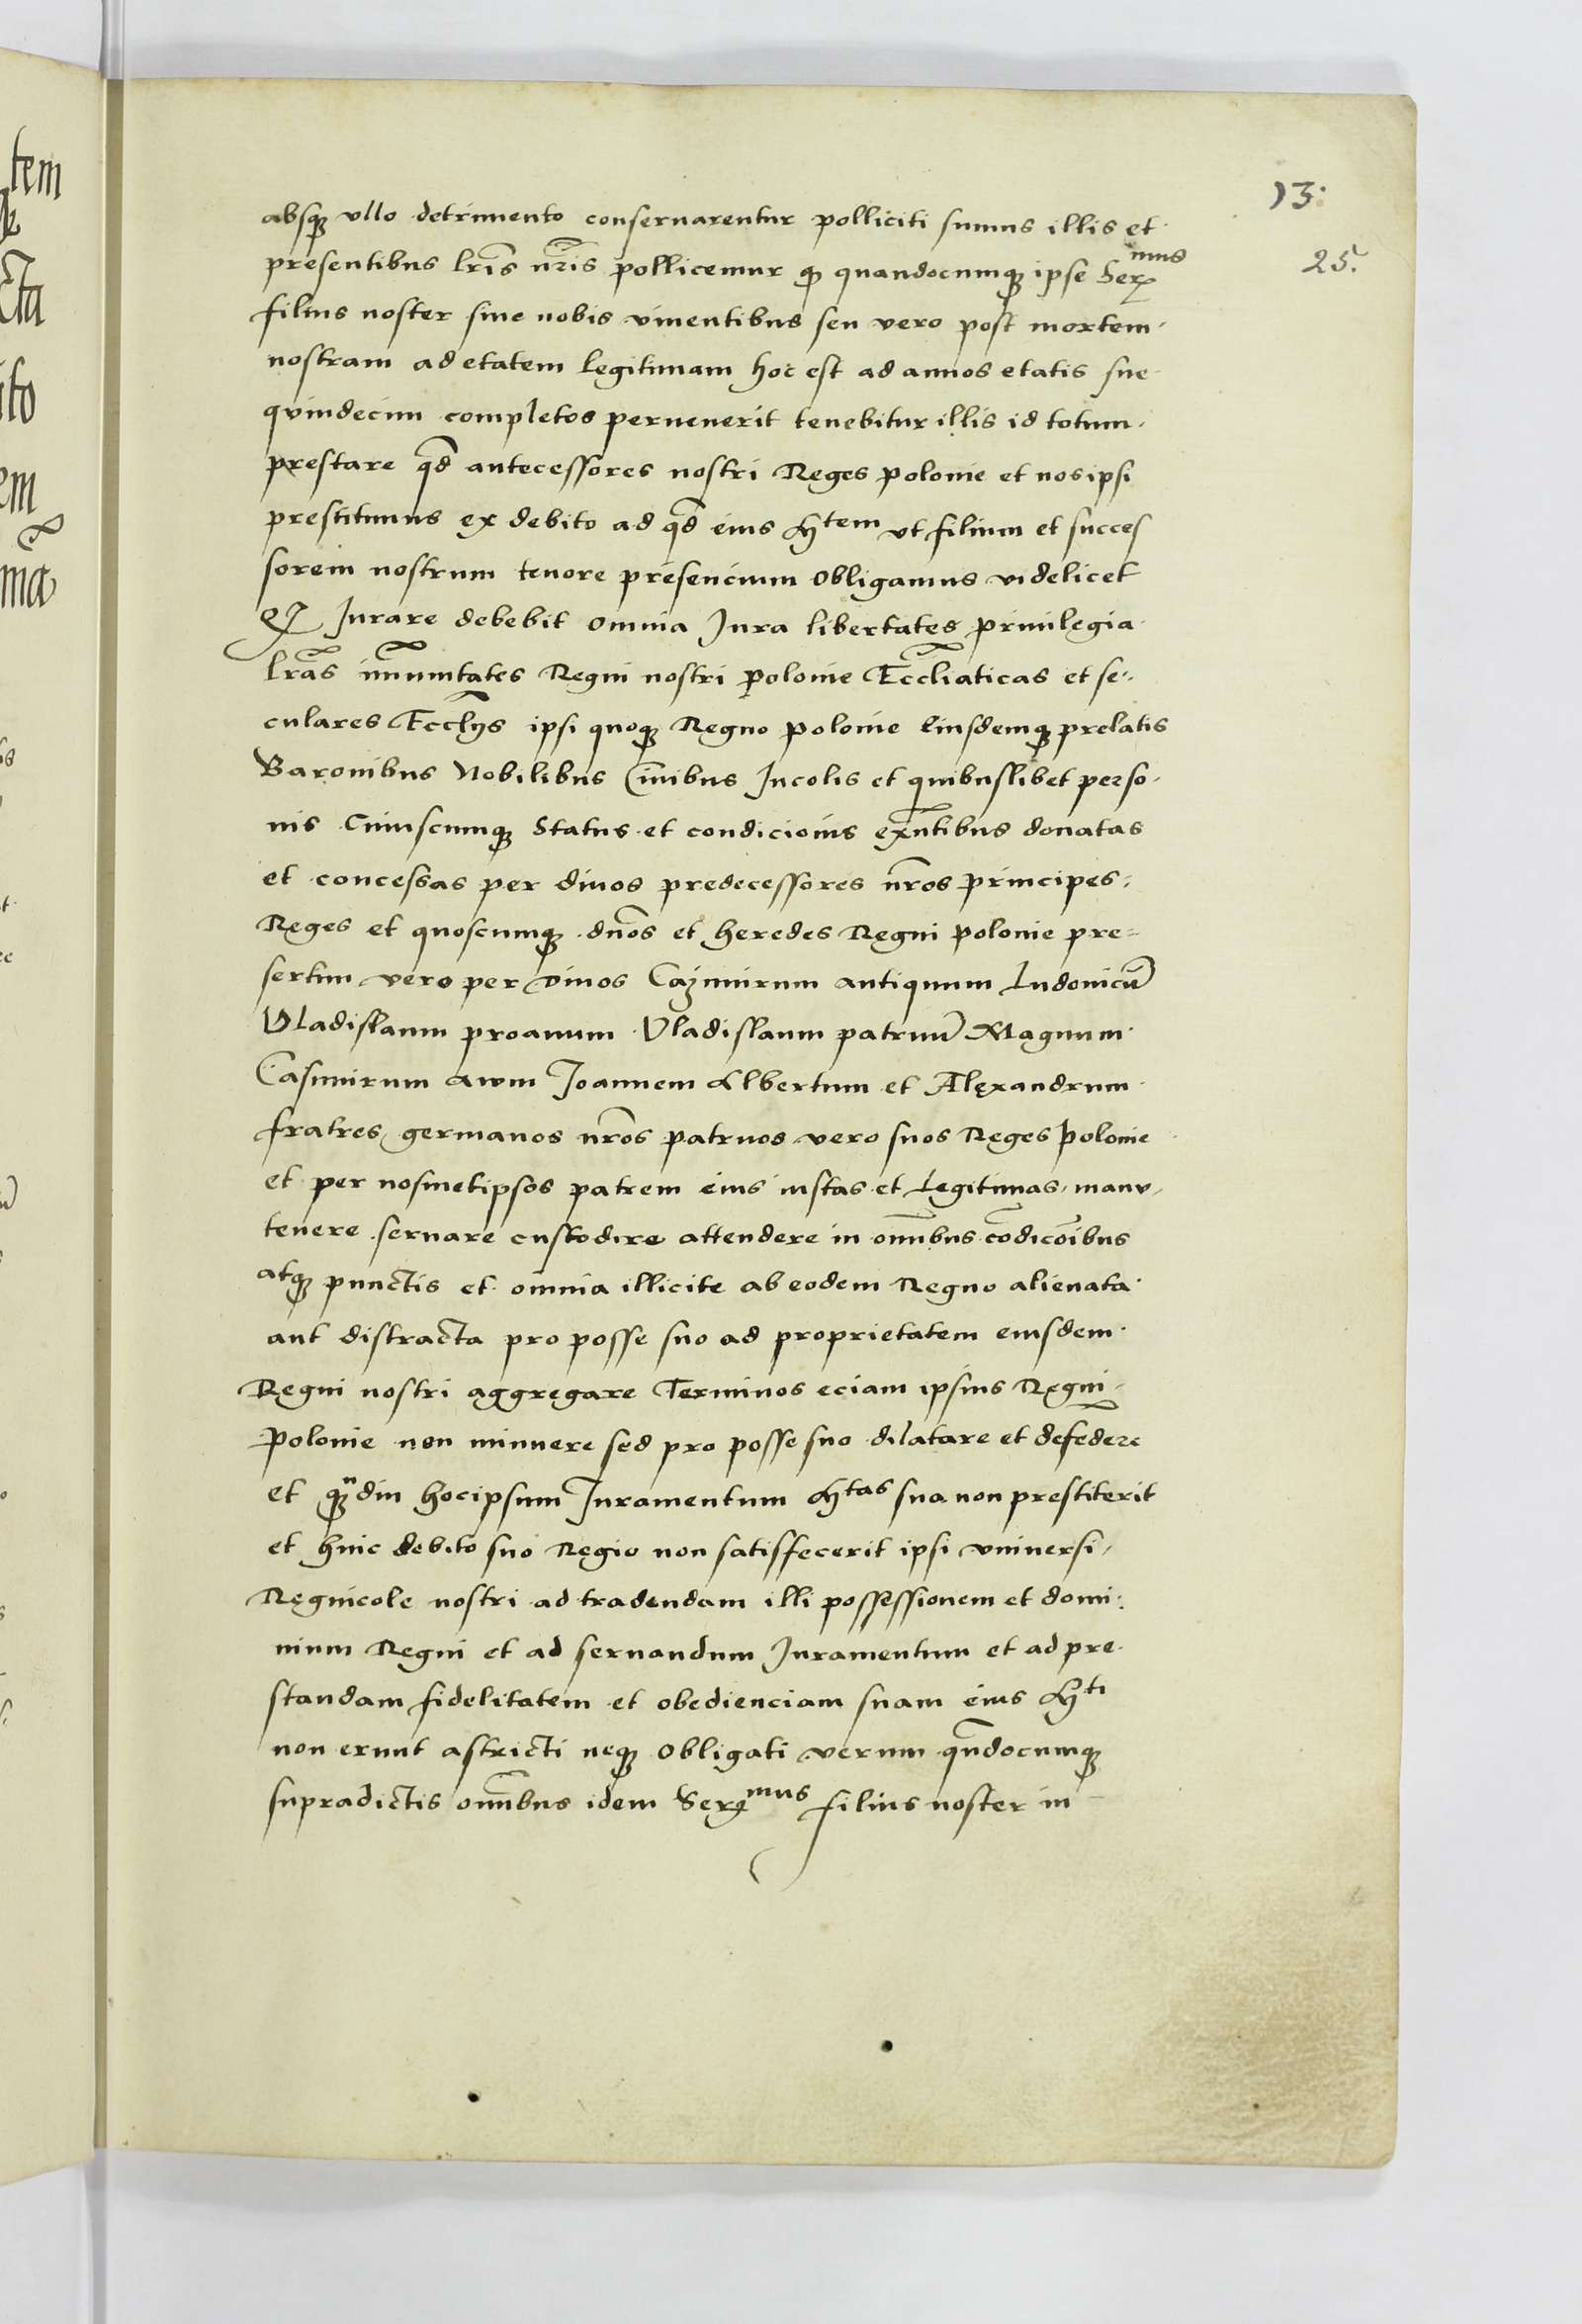 13.
25.
absq ullo detrimento conseruarentur polliciti sumus illis et
presentibus lris nris pollicemur q quandocumq ipse Serᵐᵘˢ
filius noster siue nobis viuentibus seu vero post mortem
nostram ad etatem legitimam hoc est ad annos etatis sue
quindecim completos peruenerit tenebitur illis id totum
prestare qd antecessores nostri Reges Polonie et nos ipsi
prestitimus ex debito ad qd eius Mᵗᵉᵐ vt filium et succes
sorem nostrum tenore presencium obligamus videlicet
Jurare debebit omnia Jura libertates priuilegia
lras immunitates Regni nostri Polonie Eccliaticas et se-
culares Ecclijs ipsi quoq Regno Polonie Eiusdemq prelatis
Baronibus Nobilibus Ciuibus Jncolis et quibuslibet perso-
nis Cuiuscumq Status et condicionis exntibus donatas
et concessas per diuos predecessores nros principes
Reges et quoscumq dnos et heredes Regni Polonie pre=
sertim vero per Diuos Cazimirum antiquum Ludouicu
Vladislaum proauum Vladislaum patruu Magnum
Casimirum auum Joannem Albertum et Alexandrum
fratres germanos nros patruos vero suos Reges Polonie
et per nosmetipsos patrem eius iustas et Legitimas manu-
tenere seruare custodire attendere in omnibus condicoibus
atq punctis et omnia illicite ab eodem Regno alienata
aut distracta pro posse suo ad proprietatem eiusdem
Regni nostri aggregare Terminos eciam ipsius Regni
Polonie non minuere sed pro posse suo dilatare et defedere
et qdiu hocipsum Juramentum Mᵗᵃˢ sua non prestiterit
et huic debito suo Regio non satisfecerit ipsi vniuersi
Regnicole nostri ad tradendam illi possessionem et domi-
nium Regni et ad seruandum Juramentum et ad pre
standam fidelitatem et obedienciam suam eius Mᵗⁱ
non erunt astricti neq obligati verum qndocumq
supradictis omnibus idem Serᵐᵘˢ filius noster in